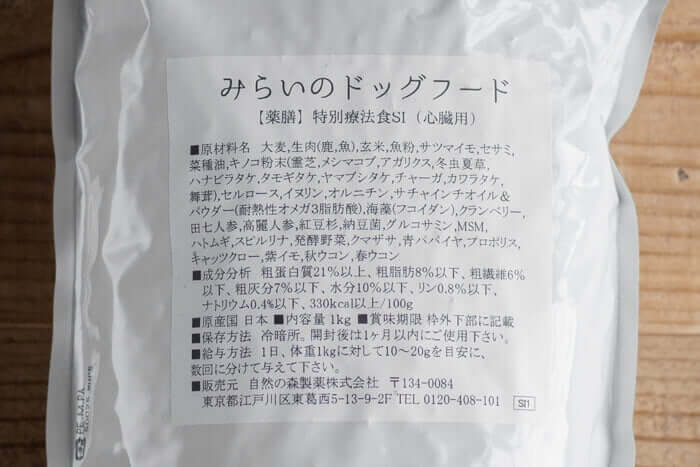 みらいのドッグフード
【薬膳】特別療法食SI（心臓用）
■原材料名　大麦,生肉(鹿,魚),玄米,魚粉,サツマイモ,セサミ,
菜種油,キノコ粉末(霊芝,メシマコブ,アガリクス,冬虫夏草,
ハナビラタケ,タモギタケ,ヤマブシタケ,チャーガ,カワラタケ,
舞茸),セルロース,イヌリン,オルニチン,サチャインチオイル＆
パウダー(耐熱性オメガ3脂肪酸),海藻(フコイダン),クランベリー,
田七人参,高麗人参,紅豆杉,納豆菌,グルコサミン,MSM,
ハトムギ,スピルリナ,発酵野菜,クマザサ,青パパイヤ,プロポリス,
キャッツクロー,紫イモ,秋ウコン,春ウコン
■成分分析　粗蛋白質21%以上、粗脂肪8%以下、粗繊維6%
以下、粗灰分7%以下、水分10%以下、リン0.8%以下、
ナトリウム0.4%以下、330kcal以上/100g
■原産国 日本 ■内容量 1kg ■賞味期限 枠外下部に記載
■保存方法　冷暗所。開封後は1ヶ月以内にご使用下さい。
■給与方法　1日、体重1kgに対して10〜20gを目安に、
数回に分けて与えて下さい。
■販売元　自然の森製薬株式会社　〒134-0084
東京都江戸川区東葛西5-13-9-2F TEL 0120-408-101
SI1